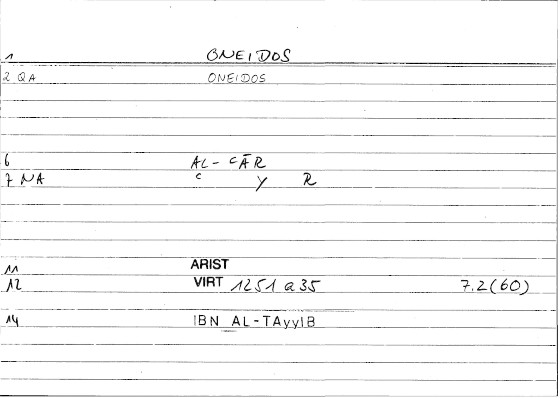 1 ONEIDOS
2 QA ONEIDOS
6 AL-ʿĀR
7 NA ʿ y R
11 ARIST
12 VIRT 1251 a 35 7.2(60)
14 IBN AL-TAyyIB